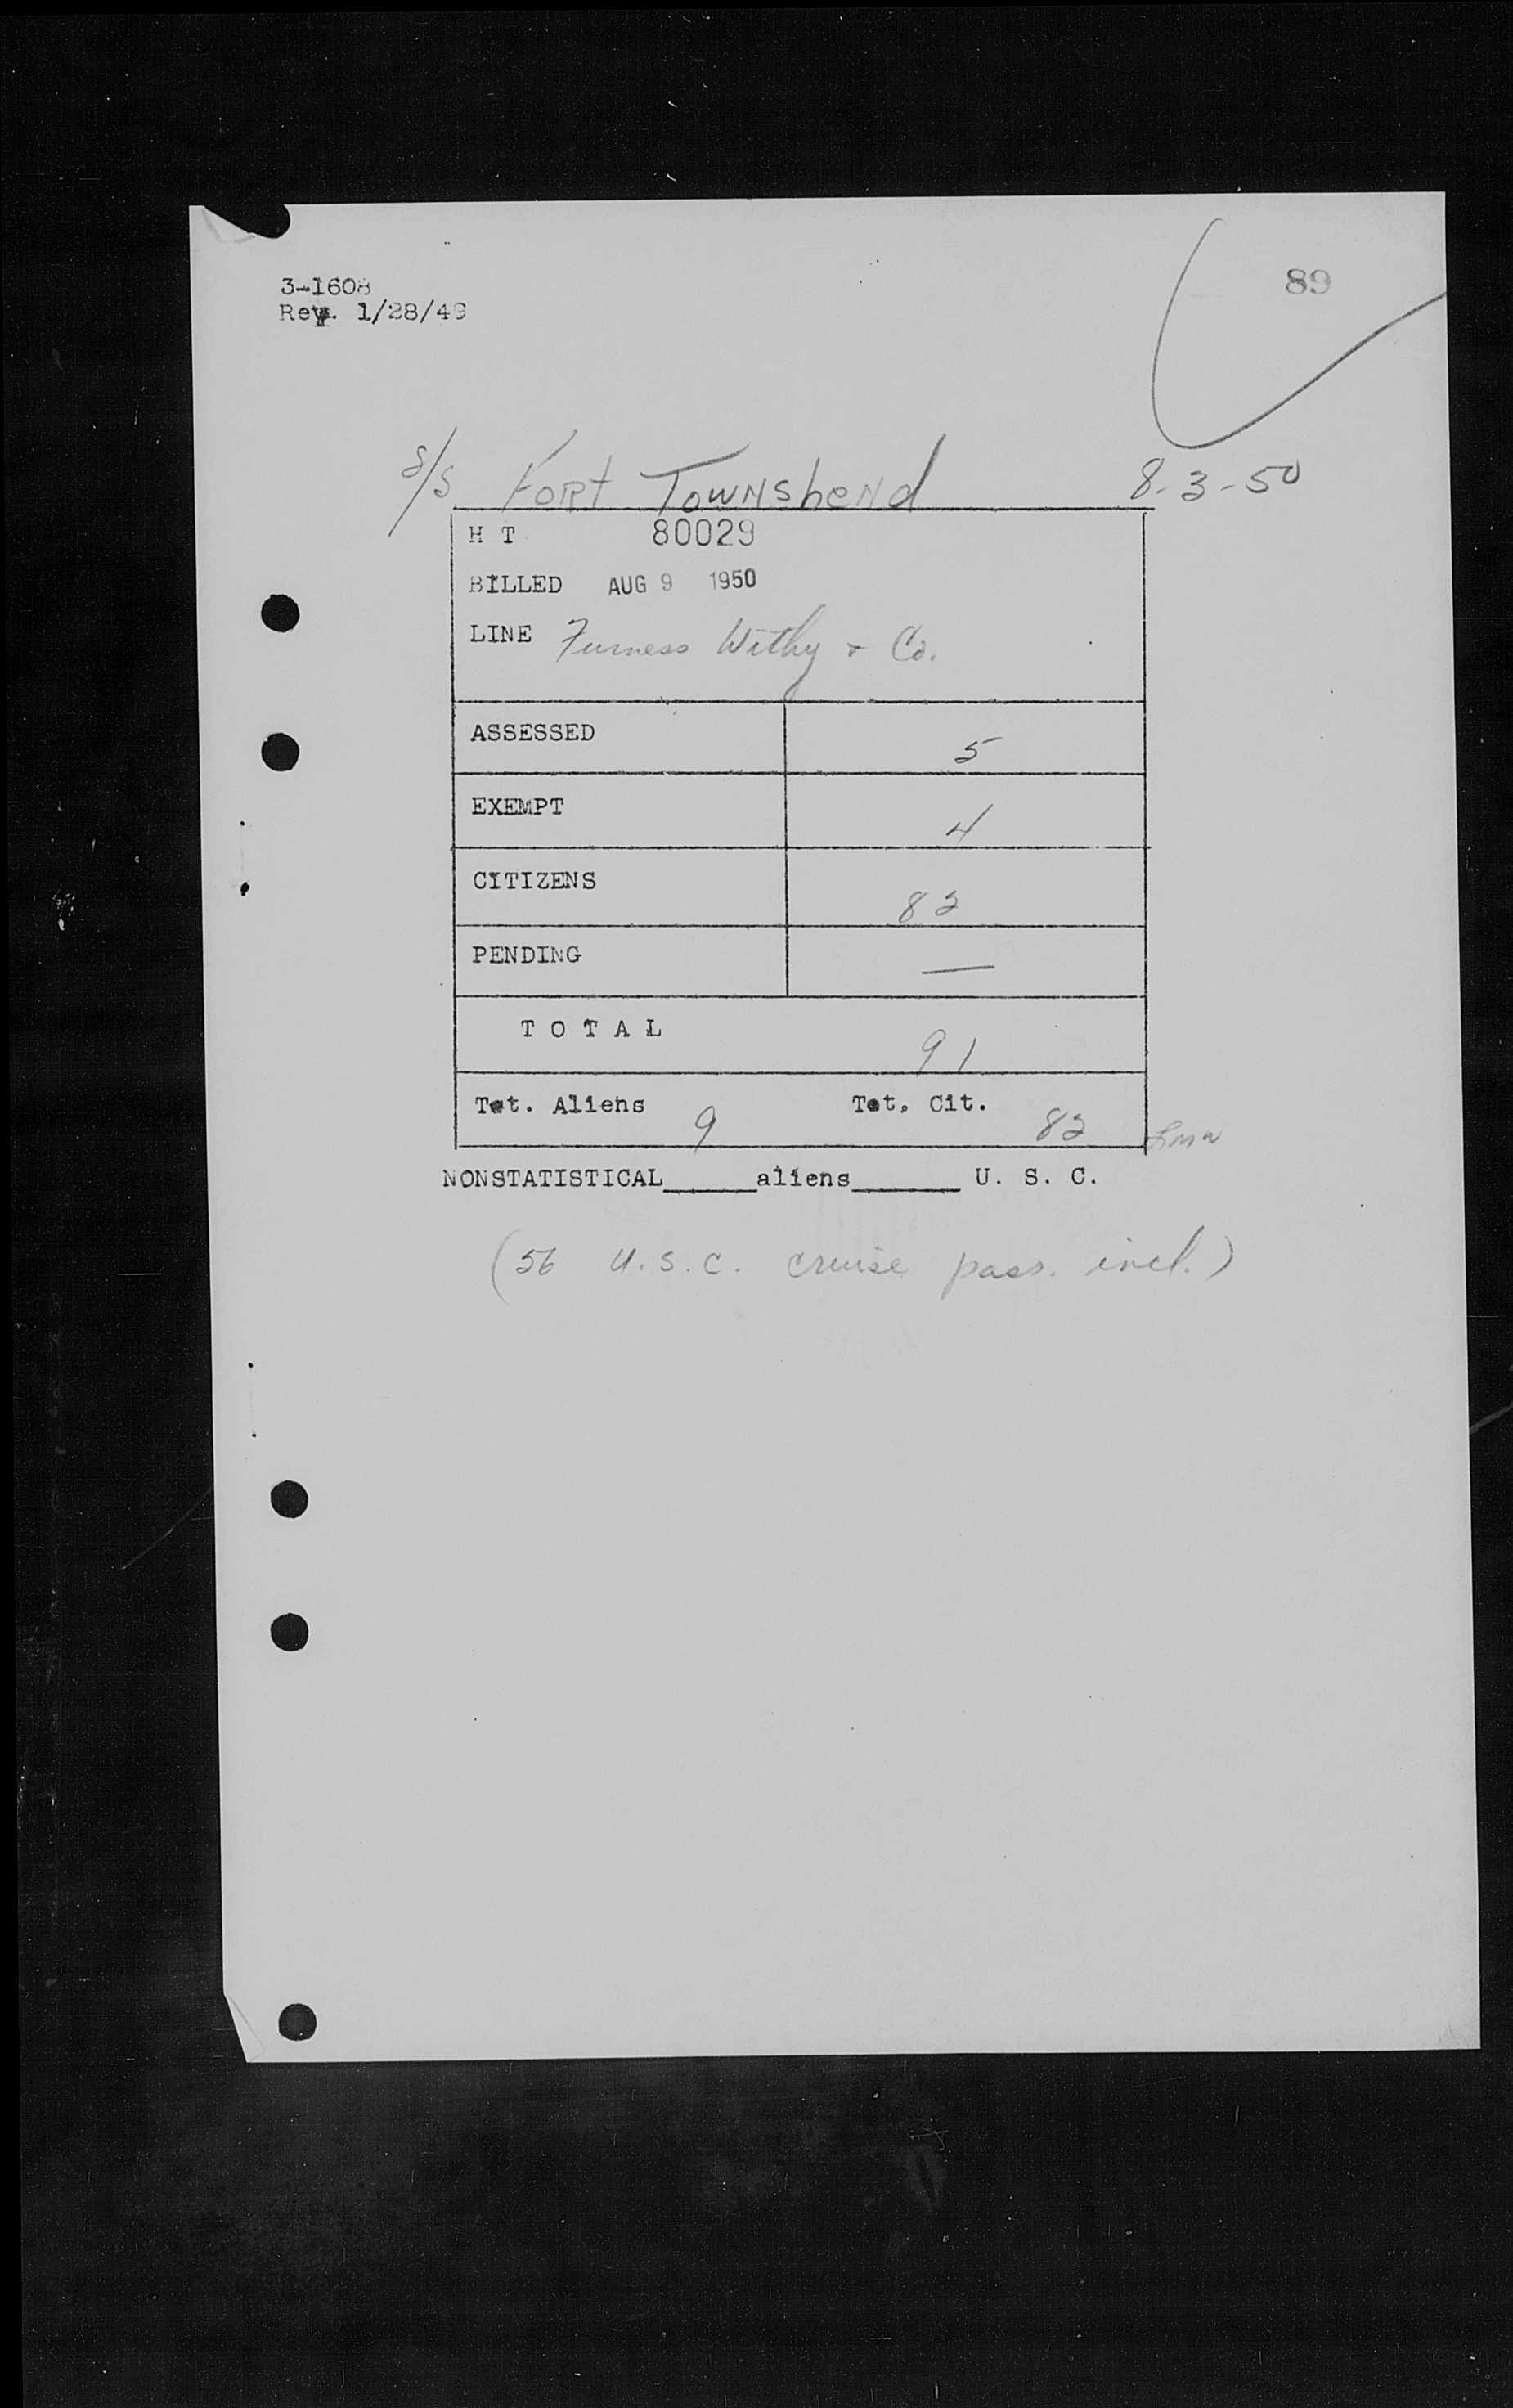 89
3-1608
Rev. 1/28/49
S/S Fort Townshend 8-3-50
H T 80029
BILLED AUG 9 1950
LINE Furness Withy & Co.
ASSESSED 5
EXEMPT 4
CITIZENS 82
PENDING —
T O T A L 91
Tot. Aliens 9 Tot. Cit. 82
NONSTATISTICAL_____aliens______ U. S. C.
(56 U.S.C. cruise pass. incl.)